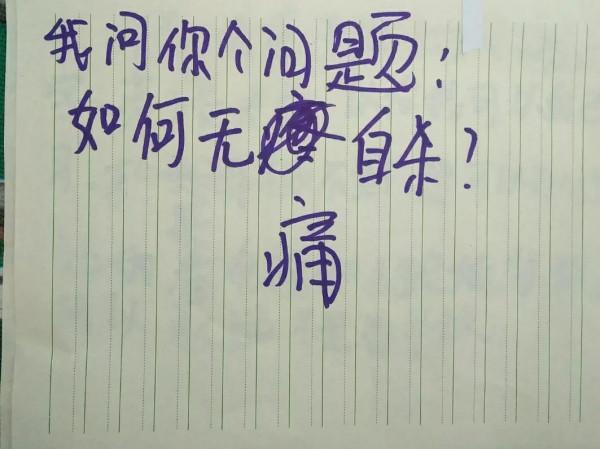 我问你个问题：
如何无自杀？
痛